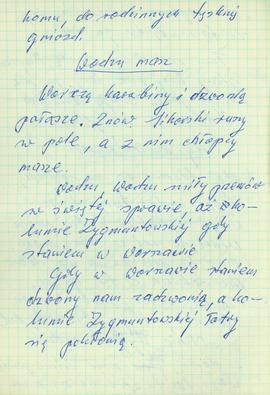 homu, do rodzinnych tęsknij
gniazd.
Wodzu nasz
Warczą karabiny i dzwonią
pałasze. Znów Sikorski ruszy
w pole, a z nim chłopcy
nasze.
Wodzu, Wodzu miły przewódź
w świętej sprawie, aż w ko-
lumie Zygmuntowskiej gdy
staniem w Warszawie
Gdy w Warszawie staniem
dzwony nam zadzwonią, a ko-
lumie Zygmuntowskiej Tatry
się pokłonią.